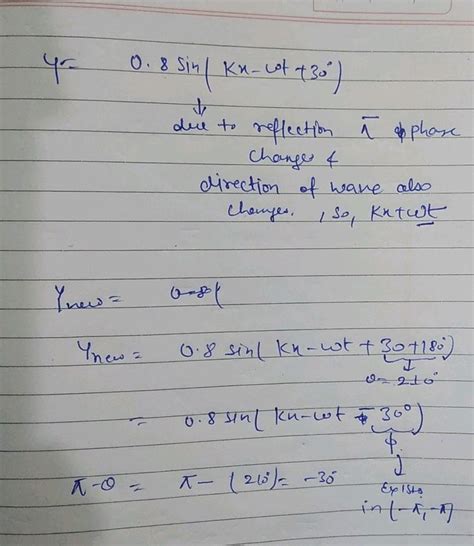 y= 0.8 sin( Kx-ωt +30°)
↓
due to reflection π phase
changes &
direction of wave also
changes. , so, Kx+ωt
Ynew = 0.8(
Ynew = 0.8 sin( Kx-ωt + 30+180°)
↓
θ=210°
= 0.8 sin( Kx-ωt - 30°)
ϕ
↓
π-θ = π- (210)= -30°
Exists
in (-π,-π)